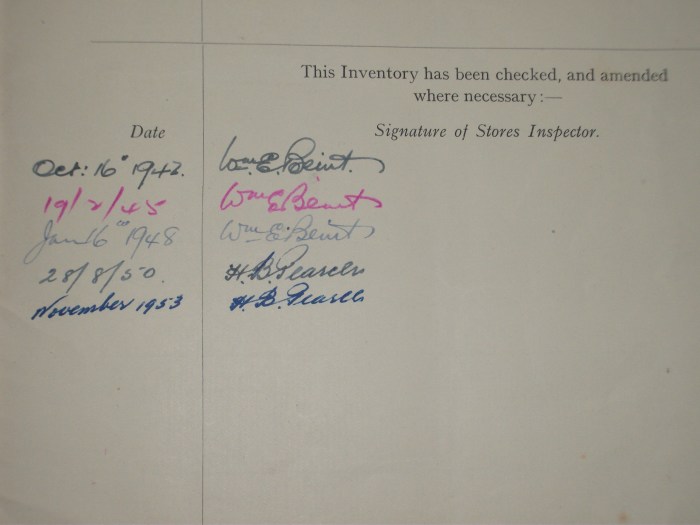 This Inventory has been checked, and amended
where necessary:—
Date Signature of Stores Inspector.
Oct: 16th 1942. Wm. E. Beint.
19/2/45 Wm E Beint
Jan 16th 1948 Wm E. Beint
28/8/50. H. B. Pearcey
November 1953 H. B.